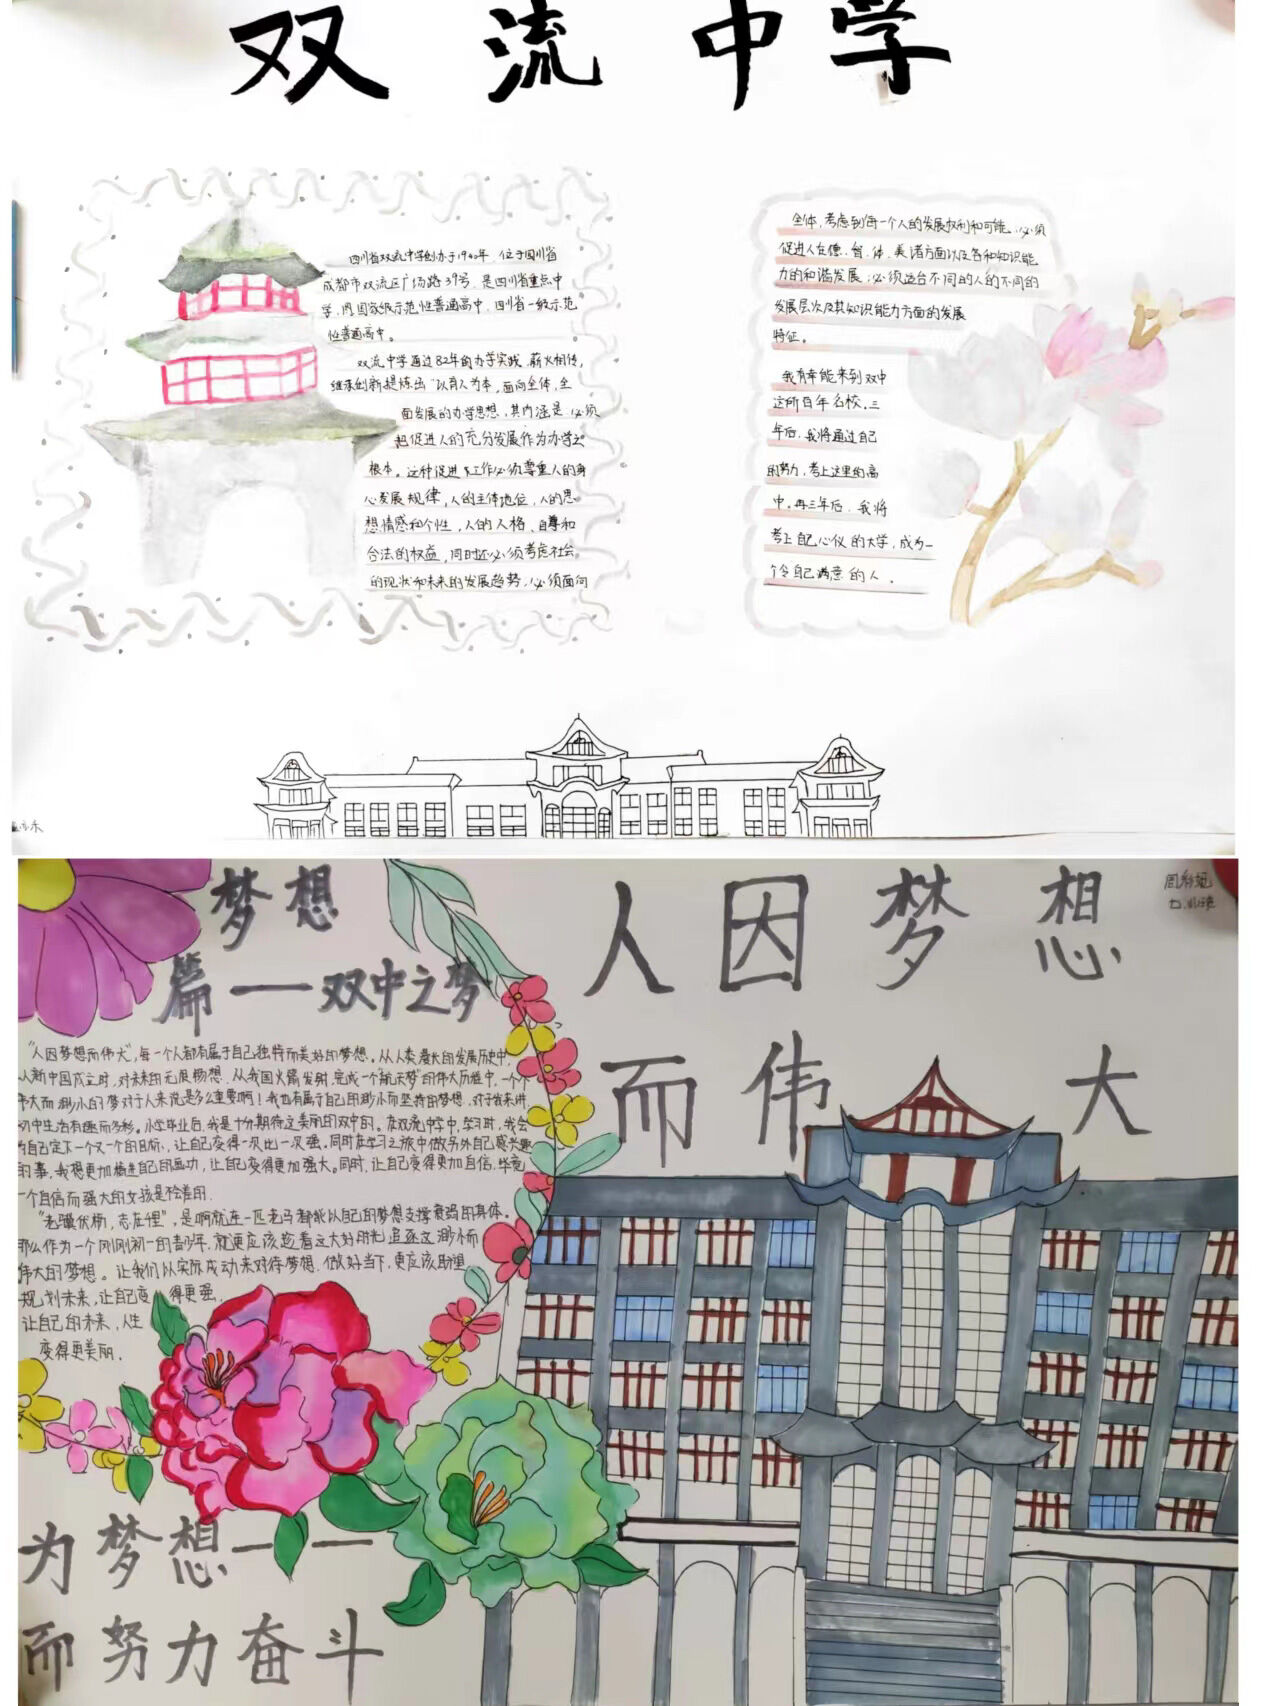 双流中学
四川省双流中学创办于1940年，位于四川省
成都市双流区广场路39号，是四川省重点中
学，国家级示范性普通高中，四川省一级示范
性普通高中。
双流中学通过82年的办学实践，薪火相传，
继承创新提炼出“以育人为本，面向全体，全
面发展的办学思想，其内涵是：必须
把促进人的充分发展作为办学之
根本。这种促进工作必须尊重人的身
心发展规律，人的主体地位，人的思
想情感和个性，人的人格、自尊和
合法的权益，同时还必须考虑社会
的现状和未来的发展趋势，必须面向
全体，考虑到每一个人的发展权利和可能，必须
促进人在德、智、体、美诸方面以及各种知识能
力的和谐发展；必须适合不同的人的不同的
发展层次及其知识能力方面的发展
特征。
我有幸能来到双中
这所百年名校。三
年后，我将通过自己
的努力，考上这里的高
中。再三年后，我将
考上自己心仪的大学，成为一
个令自己满意的人。
梦想
篇——双中之梦
人因梦想
而伟大
“人因梦想而伟大”，每一个人都有属于自己独特而美好的梦想。从人类漫长的发展历史中，
从新中国成立时，对未来的无度畅想，从我国火箭发射，完成一个“航天梦”的伟大历程中，一个个
伟大而渺小的梦对于人来说是多么重要啊！我也有属于自己的渺小而坚持的梦想。对于我来讲
初中生活有趣而多彩。小学毕业后，我是十分期待这美丽的双中的。在双流中学中，学习时，我会
自己定下一个又一个的目标，让自己变得一次比一次强。同时在学习之旅中做另外自己感兴趣
的事，我想更加精进自己的画功，让自己变得更加强大。同时，让自己变得更加自信，毕竟
一个自信而强大的女孩是不会差的。
“老骥伏枥，志在千里”，是啊就连一匹老马都能以自己的梦想支撑衰弱的身体。
那么作为一个刚刚初一的青少年，就更应该趁着这大好时光追逐这渺小而
伟大的梦想。让我们以实际成动来对待梦想，做好当下，更应该助望
规划未来，让自己变得更强，
让自己的未来，人生
变得更美丽。
为梦想——
而努力奋斗